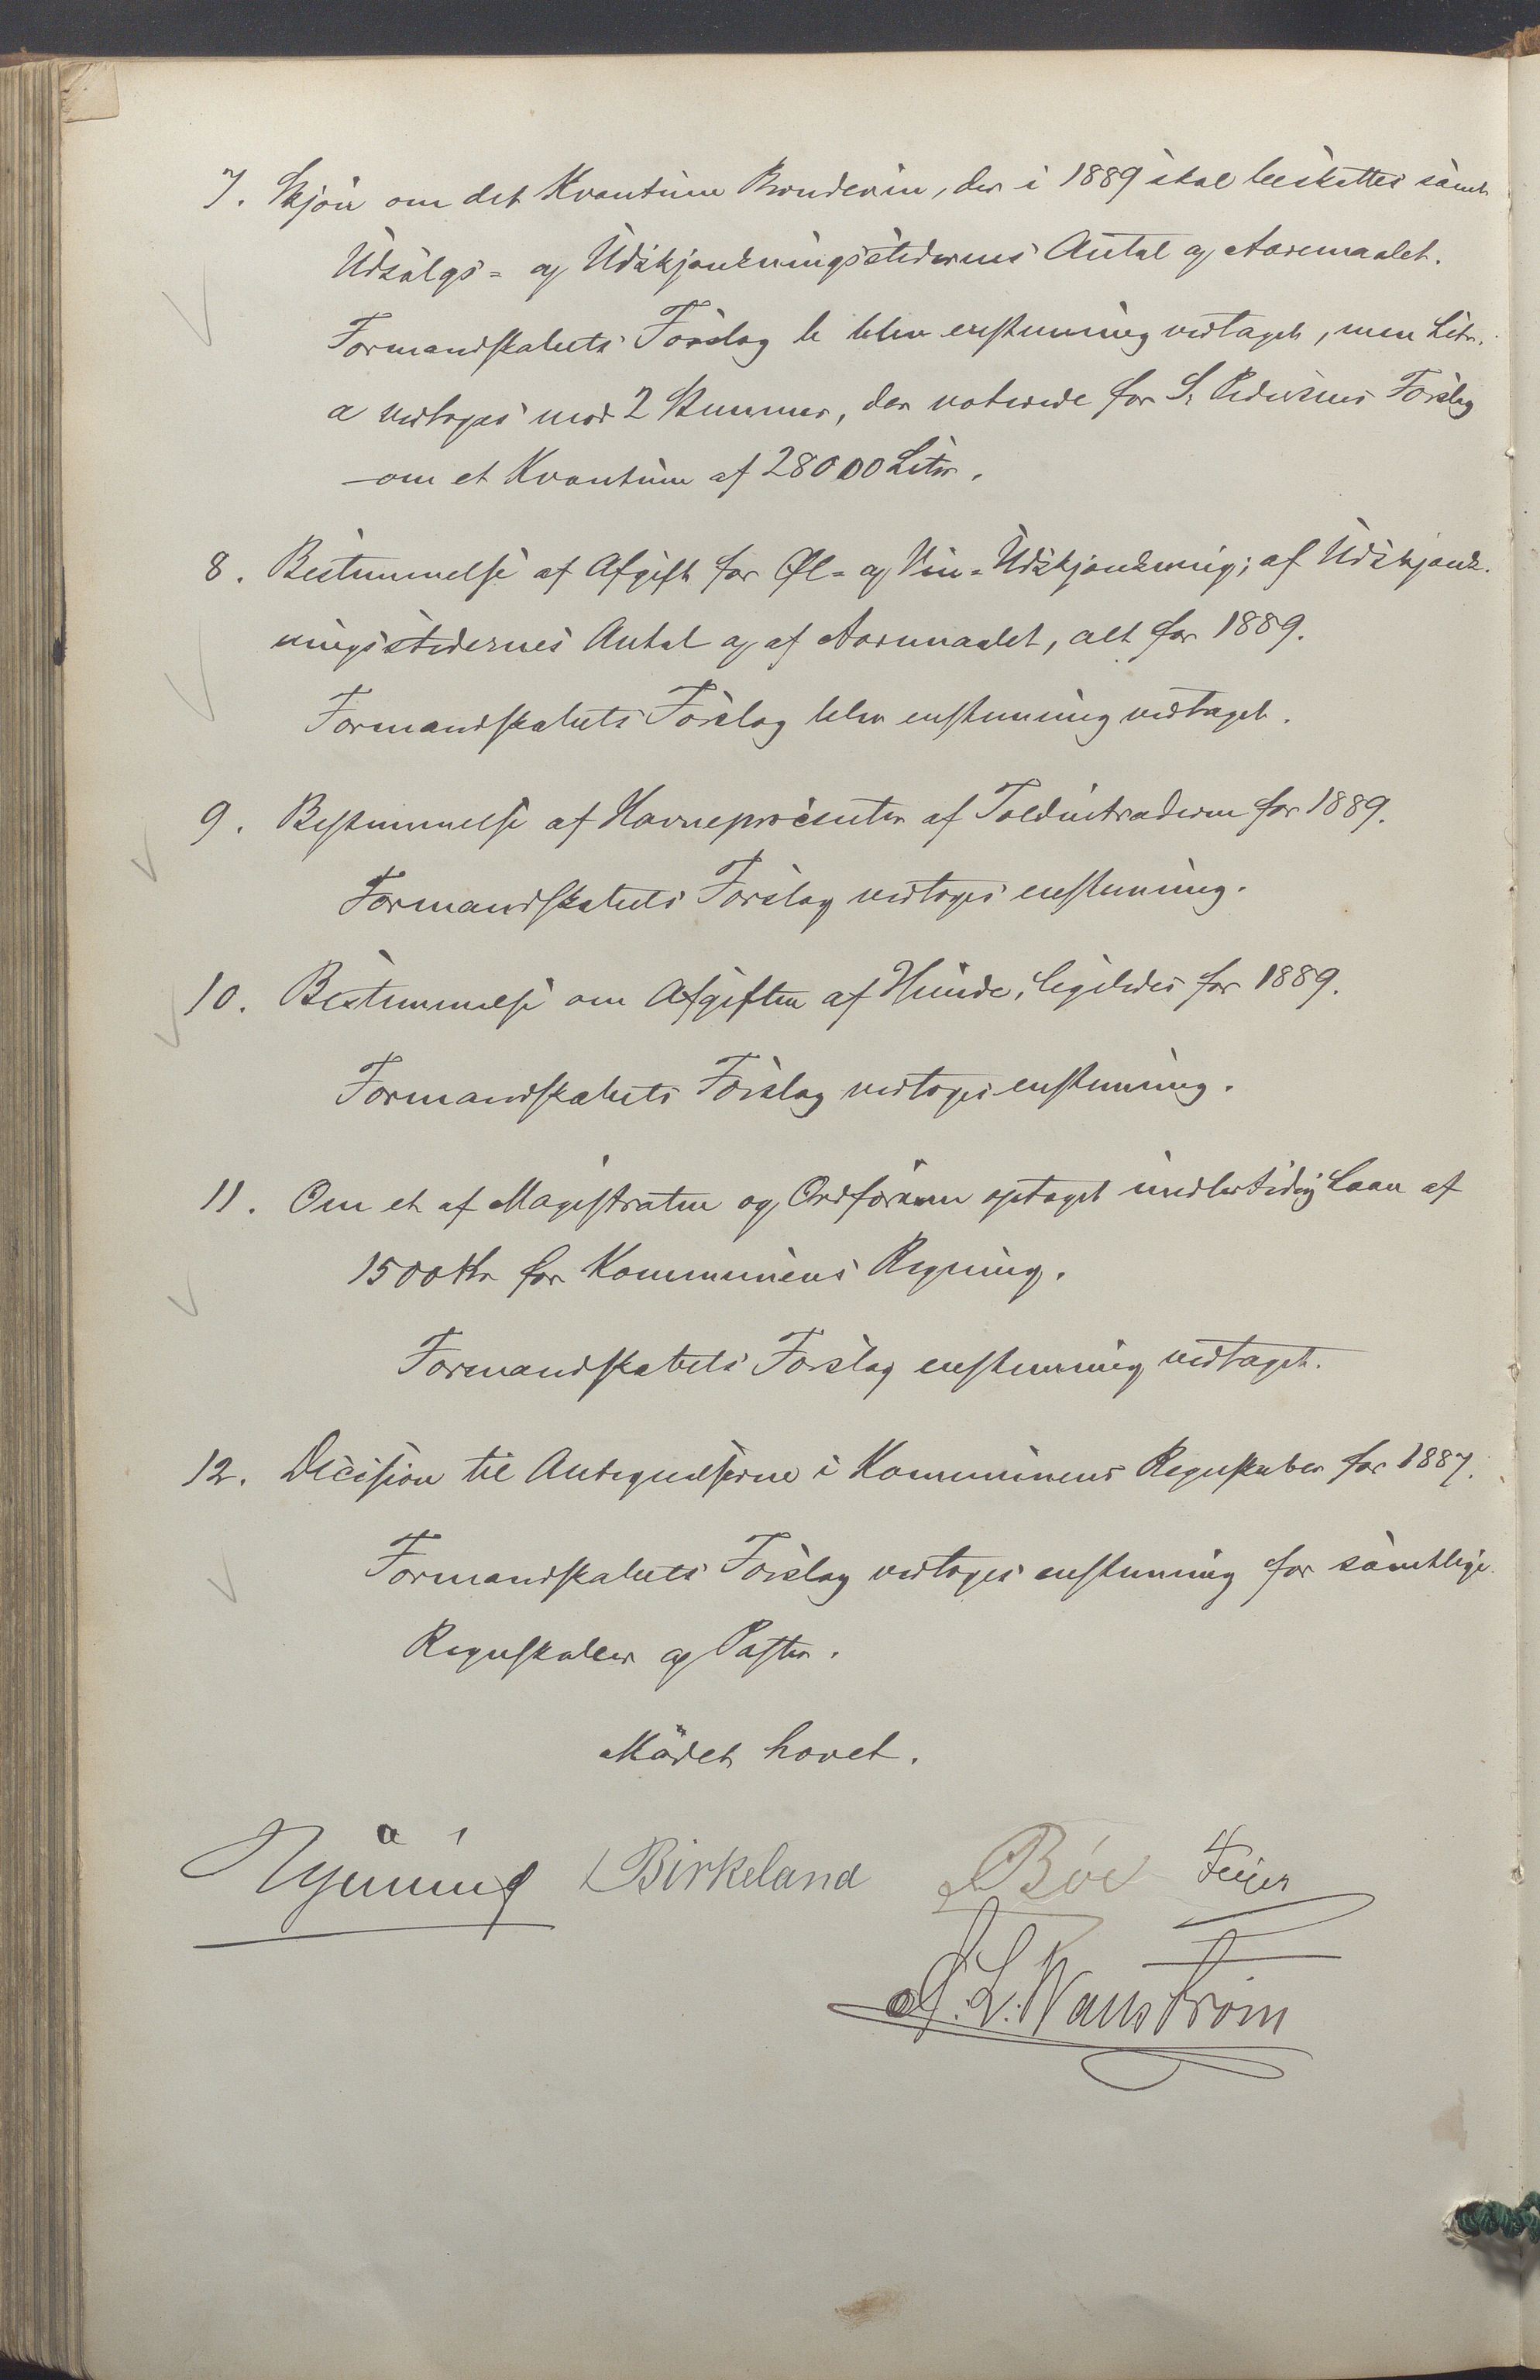 7. Skjøn om det Kvantum Brændevin, der i 1889 skal beskattes samt
Udsalgs- og Udskjænkningsstedernes Antal og Aaremaalet.
Formandskabets Forslag b blev enstemmig vedtaget, men Litr.
a vedtoges mod 2 Stemmer, der voterede for S. Pedersens Forslag
om et Kvantum af 28000 Liter.
8. Bestemmelse af Afgift for Øl- og Vin-Udskjænkning; af Udskjænk-
ningsstedernes Antal og af Aaremaalet, alt for 1889.
Formandskabets Forslag blev enstemmig vedtaget.
9. Bestemmelse af Havneprocenter af Toldintraderne for 1889.
Formandskabets Forslag vedtoges enstemmig.
10. Bestemmelse om Afgiften af Hunde, ligeledes for 1889.
Formandskabets Forslag vedtoges enstemmig.
11. Om et af Magistraten og Ordføreren optaget midlertidig Laan af
1500 Kr for Kommunens Regning.
Formandskabets Forslag enstemmig vedtaget.
12. Decision til Antegnelserne i Kommunens Regnskaber for 1887.
Formandskabets Forslag vedtoges enstemmig for samtlige
Regnskaber og Poster.
Mødet hævet.
Birkeland Bøe Feyer
L. Wanstrøm